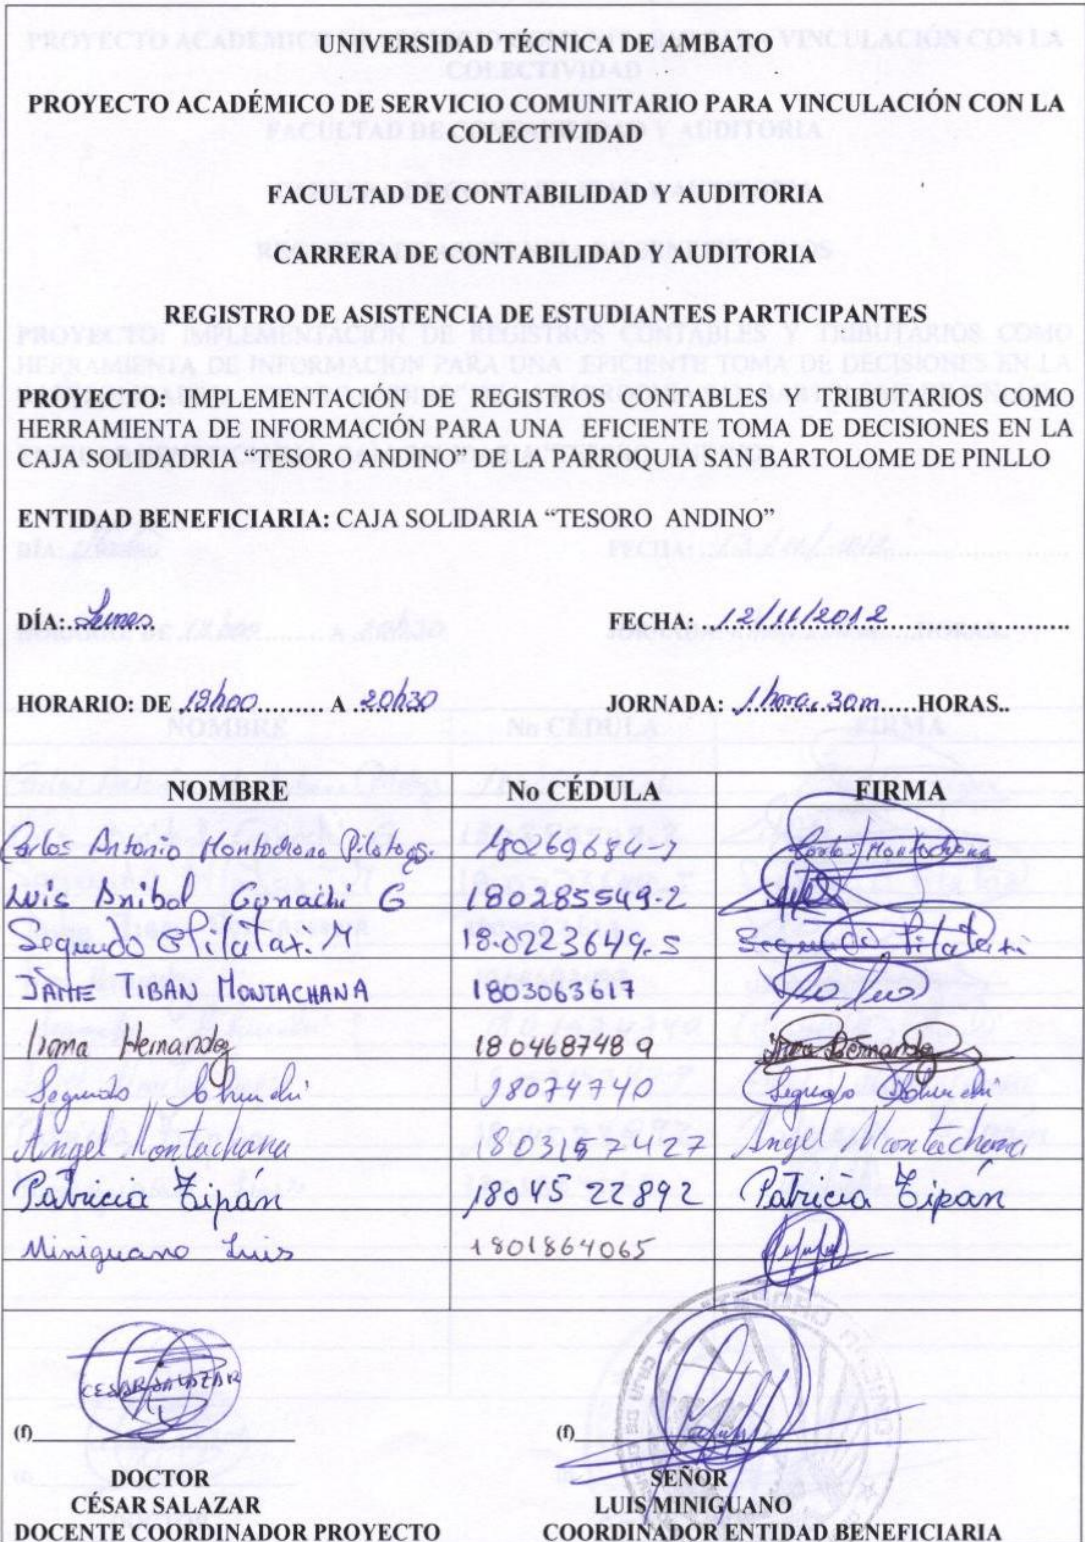 UNIVERSIDAD TÉCNICA DE AMBATO
PROYECTO ACADÉMICO DE SERVICIO COMUNITARIO PARA VINCULACIÓN CON LA
COLECTIVIDAD
FACULTAD DE CONTABILIDAD Y AUDITORIA
CARRERA DE CONTABILIDAD Y AUDITORIA
REGISTRO DE ASISTENCIA DE ESTUDIANTES PARTICIPANTES
PROYECTO: IMPLEMENTACIÓN DE REGISTROS CONTABLES Y TRIBUTARIOS COMO
HERRAMIENTA DE INFORMACIÓN PARA UNA EFICIENTE TOMA DE DECISIONES EN LA
CAJA SOLIDADORIA “TESORO ANDINO” DE LA PARROQUIA SAN BARTOLOME DE PINLLO
ENTIDAD BENEFICIARIA: CAJA SOLIDARIA “TESORO ANDINO”
DÍA: Lunes FECHA: 12/11/2012
HORARIO: DE 19h00 A 20h30 JORNADA: 1 hora, 30m HORAS..
NOMBRE No CÉDULA FIRMA
Carlos Antonio Carlos
Luis Anibal G 180285549-2
Segundo Pilatax. M 18.0223649-5 Segundo
JAIME TIBAN MONTACHANA 1803063617
Irma Hernandez 180468748 9 Irma Hernandez
Segundo 18074740 Segundo
Angel Montachana 1803157427 Angel Montachana
Patricia Tipán 18045 22892 Patricia Tipán
Miniguano Luis 1801864065
CESAR SALAZAR
(f) (f)
DOCTOR SEÑOR
CÉSAR SALAZAR LUIS MINIGUANO
DOCENTE COORDINADOR PROYECTO COORDINADOR ENTIDAD BENEFICIARIA